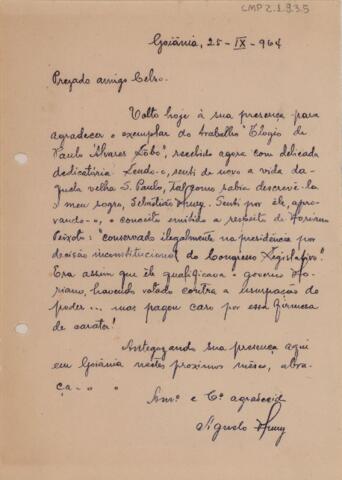 CMP 2.1.9.35
Goiânia, 25-IX-964
Prezado amigo Celso.
Volto hoje à sua presença para
agradecer o exemplar do trabalho "Elogio de
Paulo Álvares Lobo", recebido agora com delicada
dedicatória. Lendo-o, senti de novo a vida da-
quela velha S. Paulo, tal como sabia descrevê-la
o meu sogro, Sebastião Fleury. Senti por êle, apro-
vando-o, o conceito emitido a respeito de Floriano
Peixoto: "conservado ilegalmente na presidência por
decisão inconstitucional do Congresso Legislativo".
Era assim que êle qualificava o govêrno Flo-
riano, havendo votado contra a usurpação do
poder... mas pagou caro por essa firmeza
de caráter!
Antegozando sua presença aqui
em Goiânia nestes proximos mêses, abra-
ça-o o
Amº e Cº agradecido